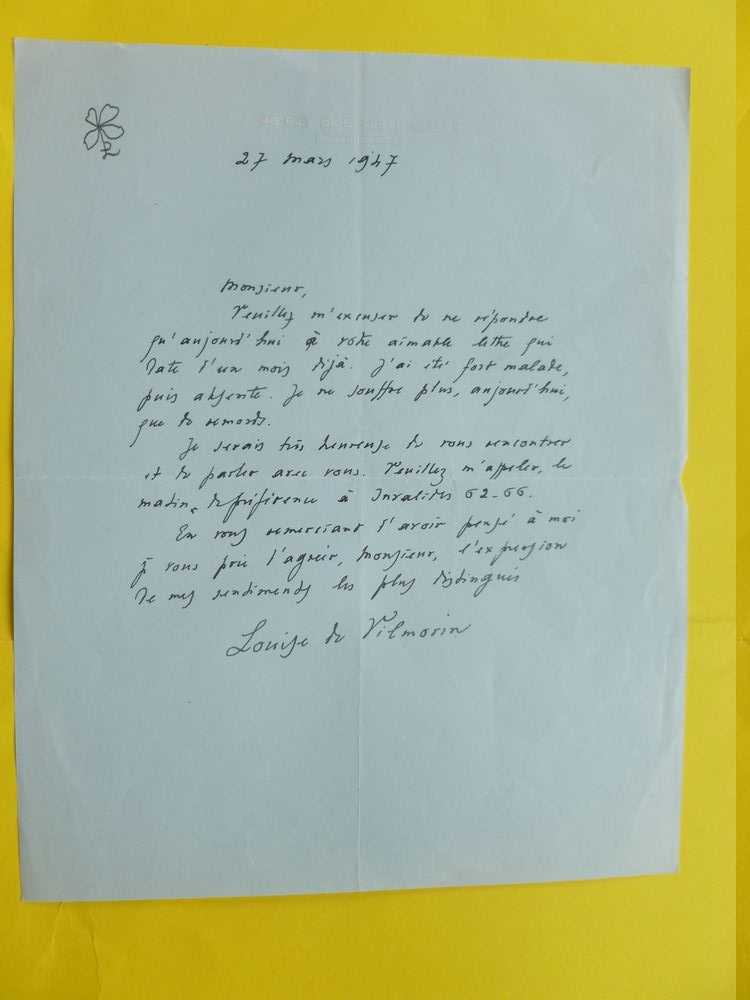 L
27 mars 1947
Monsieur,
Veuillez m'excuser de ne répondre
qu'aujourd'hui à votre aimable lettre qui
date d'un mois déjà. J'ai été fort malade,
puis absente. Je ne souffre plus, aujourd'hui,
que de remords.
Je serais très heureuse de vous rencontrer
et de parler avec vous. Veuillez m'appeler, le
matin, de préférence à Invalides 62-66.
En vous remerciant d'avoir pensé à moi
je vous prie d'agréer, Monsieur, l'expression
de mes sentiments les plus distingués
Louise de Vilmorin